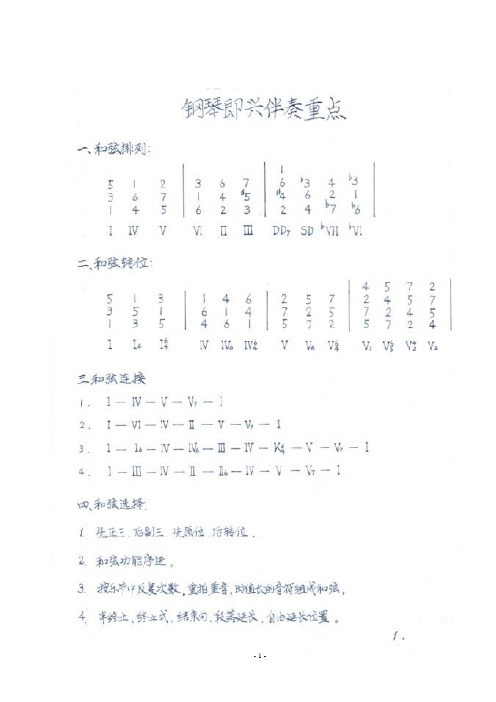 钢琴即兴伴奏重点
一、和弦排列:
1
5 1 2 | 3 6 7 | 6 ♭3 4 ♭3
3 6 7 | 1 4 #5 | #4 6 2 1
1 4 5 | 6 2 3 | 2 4 ♭7 ♭6
I IV V VI II III DD7 SD ♭VII ♭VI
二、和弦转位:
4 5 7 2
5 1 3 | 1 4 6 | 2 5 7 | 2 4 5 7
3 5 1 | 6 1 4 | 7 2 5 | 7 2 4 5
1 3 5 | 4 6 1 | 5 7 2 | 5 7 2 4
I I6 I64 IV IV6 IV64 V V6 V64 V7 V65 V43 V2
三、和弦连接
1. I — IV — V — V7 — I
2. I — VI — IV — II — V — V7 — I
3. I — I6 — IV — IV6 — III — IV — K64 — V — V7 — I
4. I — III — IV — II — II6 — IV — V — V7 — I
四、和弦选择.
1. 先正三.后副三.先原位.后转位.
2. 和弦功能序进。
3. 按乐节中反复次数,重拍重音,时值长的音符组成和弦,
4. 半终止、终止式、结束句、段落延长、自由延长位置。
1.
- 1 -